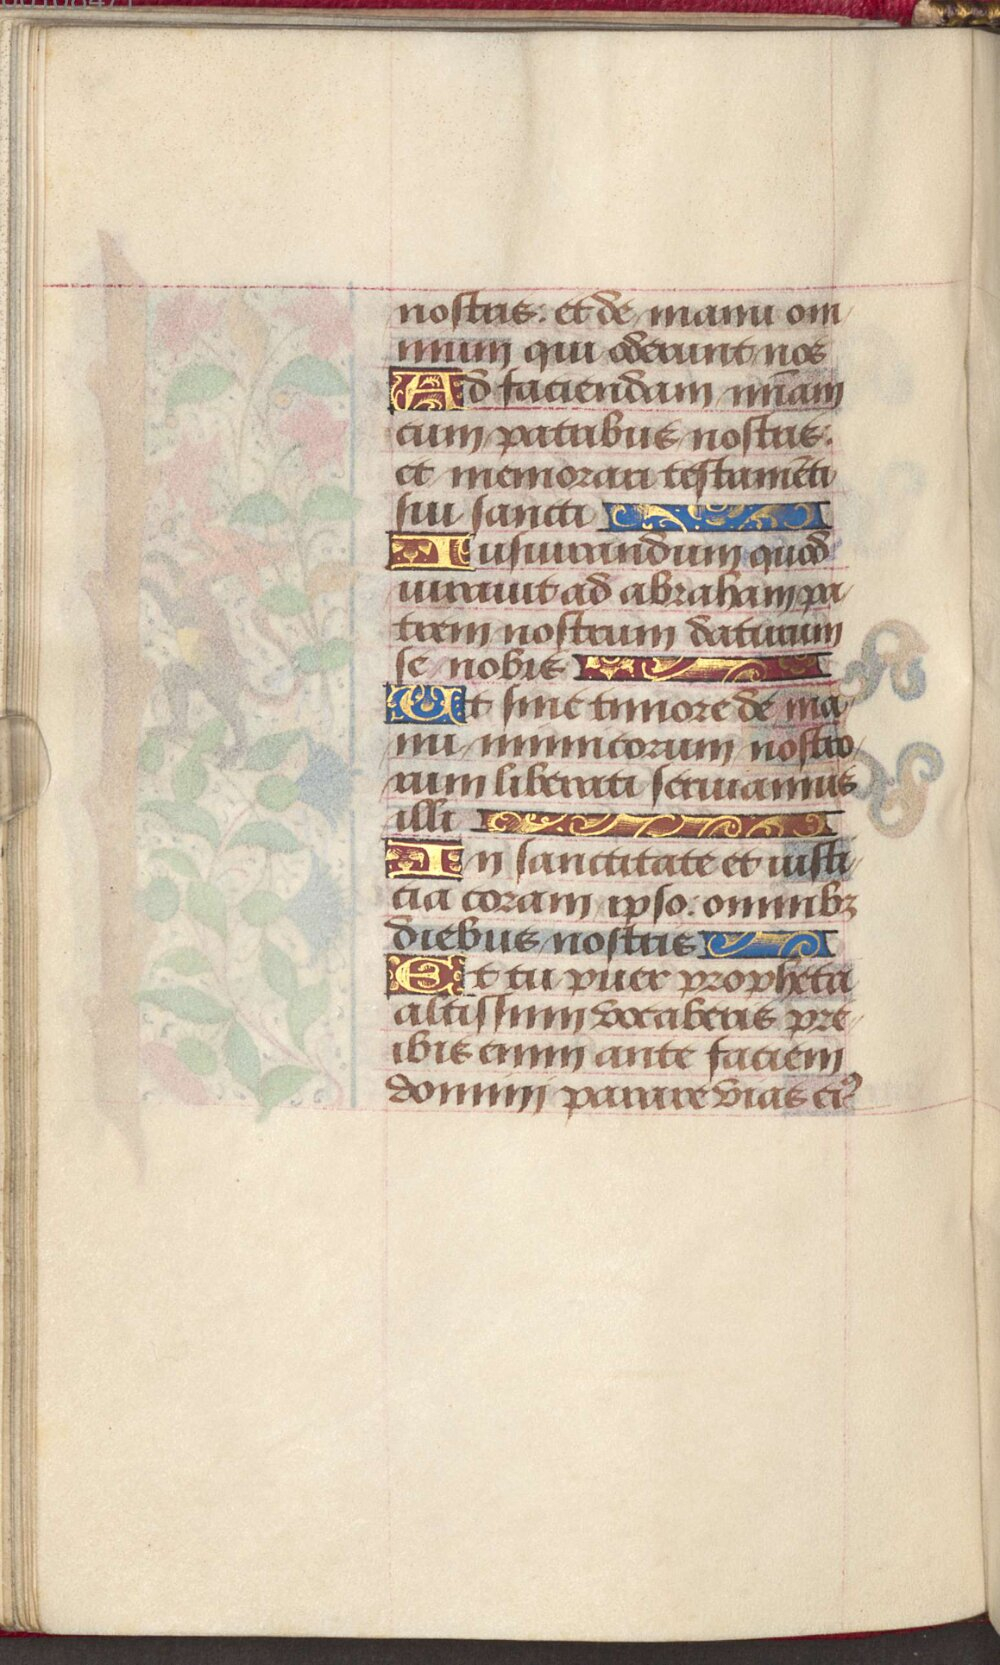 nostris: et de manu om
nium qui oderunt nos
Ad faciendam miãm
cum patribus nostris:
et memorari testamẽti
sui sancti
Iusiurandum quod
iurauit ad abraham pa
trem nostrum daturum
se nobis
Ut sine timore de ma
nu inimicorum nostro
rum liberati seruiamus
illi
In sanctitate et iusti
cia coram ipso: omnibꝫ
diebus nostris
Et tu puer propheta
altissimi vocaberis pre
ibis enim ante faciem
domini parare vias eiꝰ